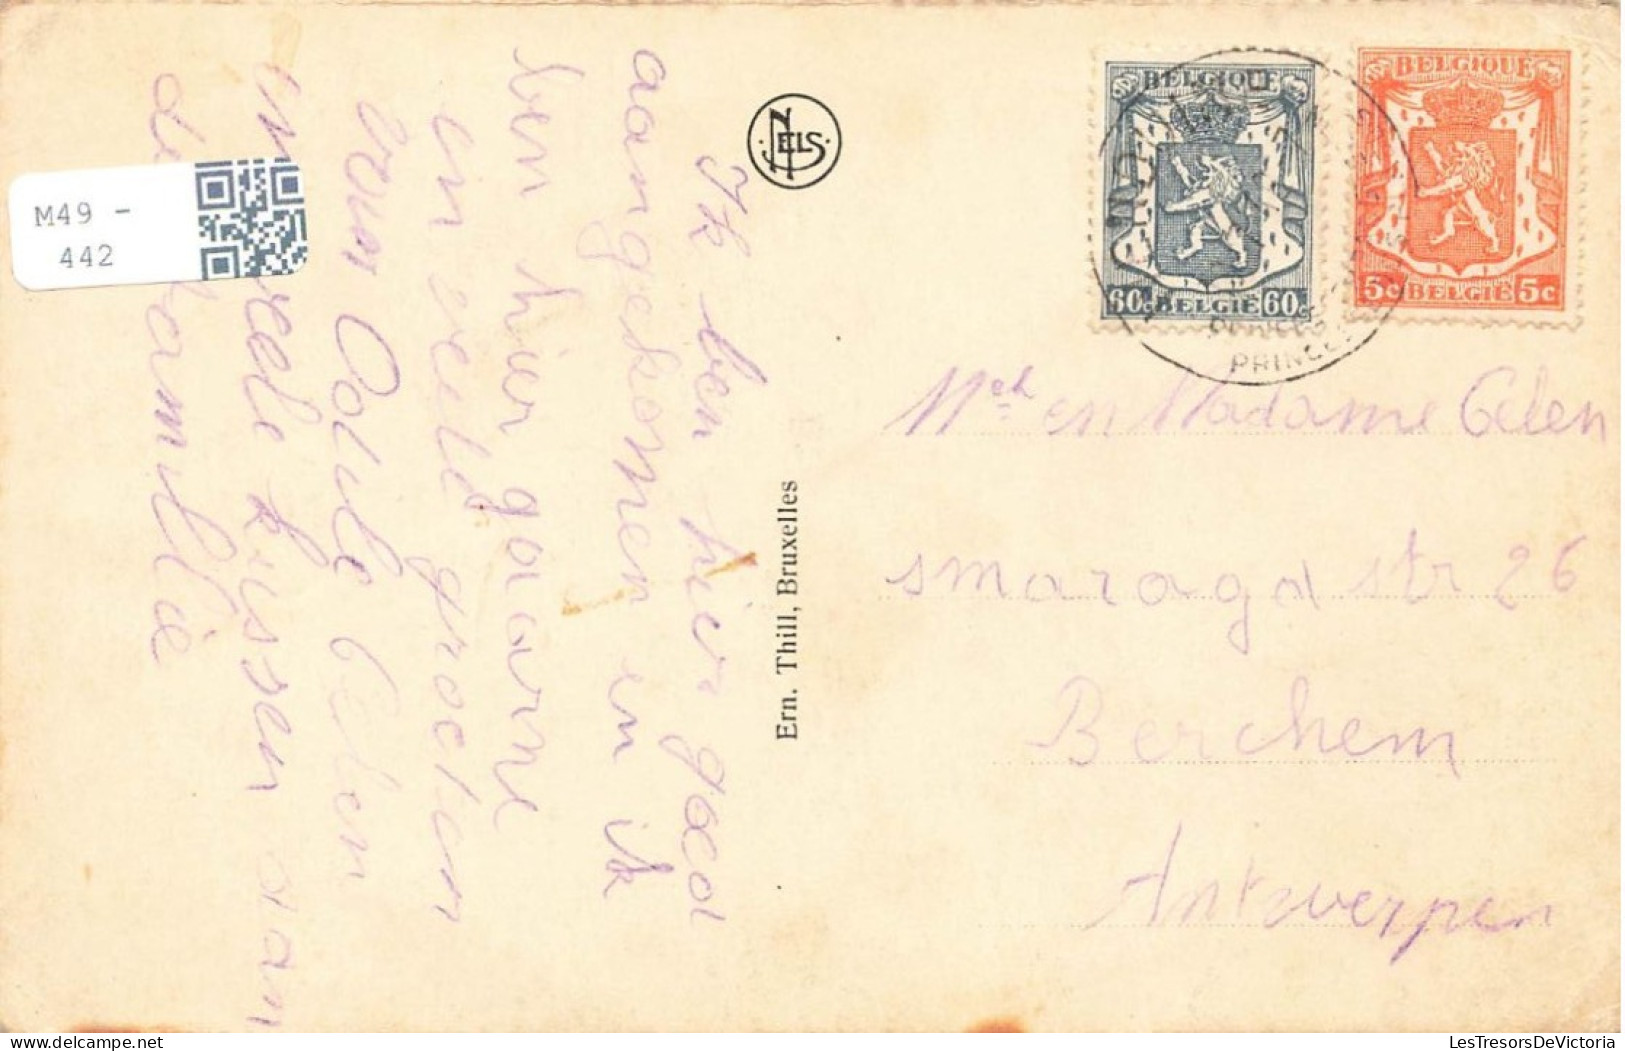 Ik ben hier goed
aangekomen en ik
ben hier gaarne
en veele groeten
van Odile Celen
en veele kussen aan
de familie
NELS
Ern. Thill, Bruxelles
BELGIQUE
60c BELGIE 60c
BELGIQUE
5c BELGIË 5c
PRINCE
en Madame Celen
smaragd str 26
Berchem
Antwerpen
M49 -
442
delcampe.net
LesTresorsDeVictoria